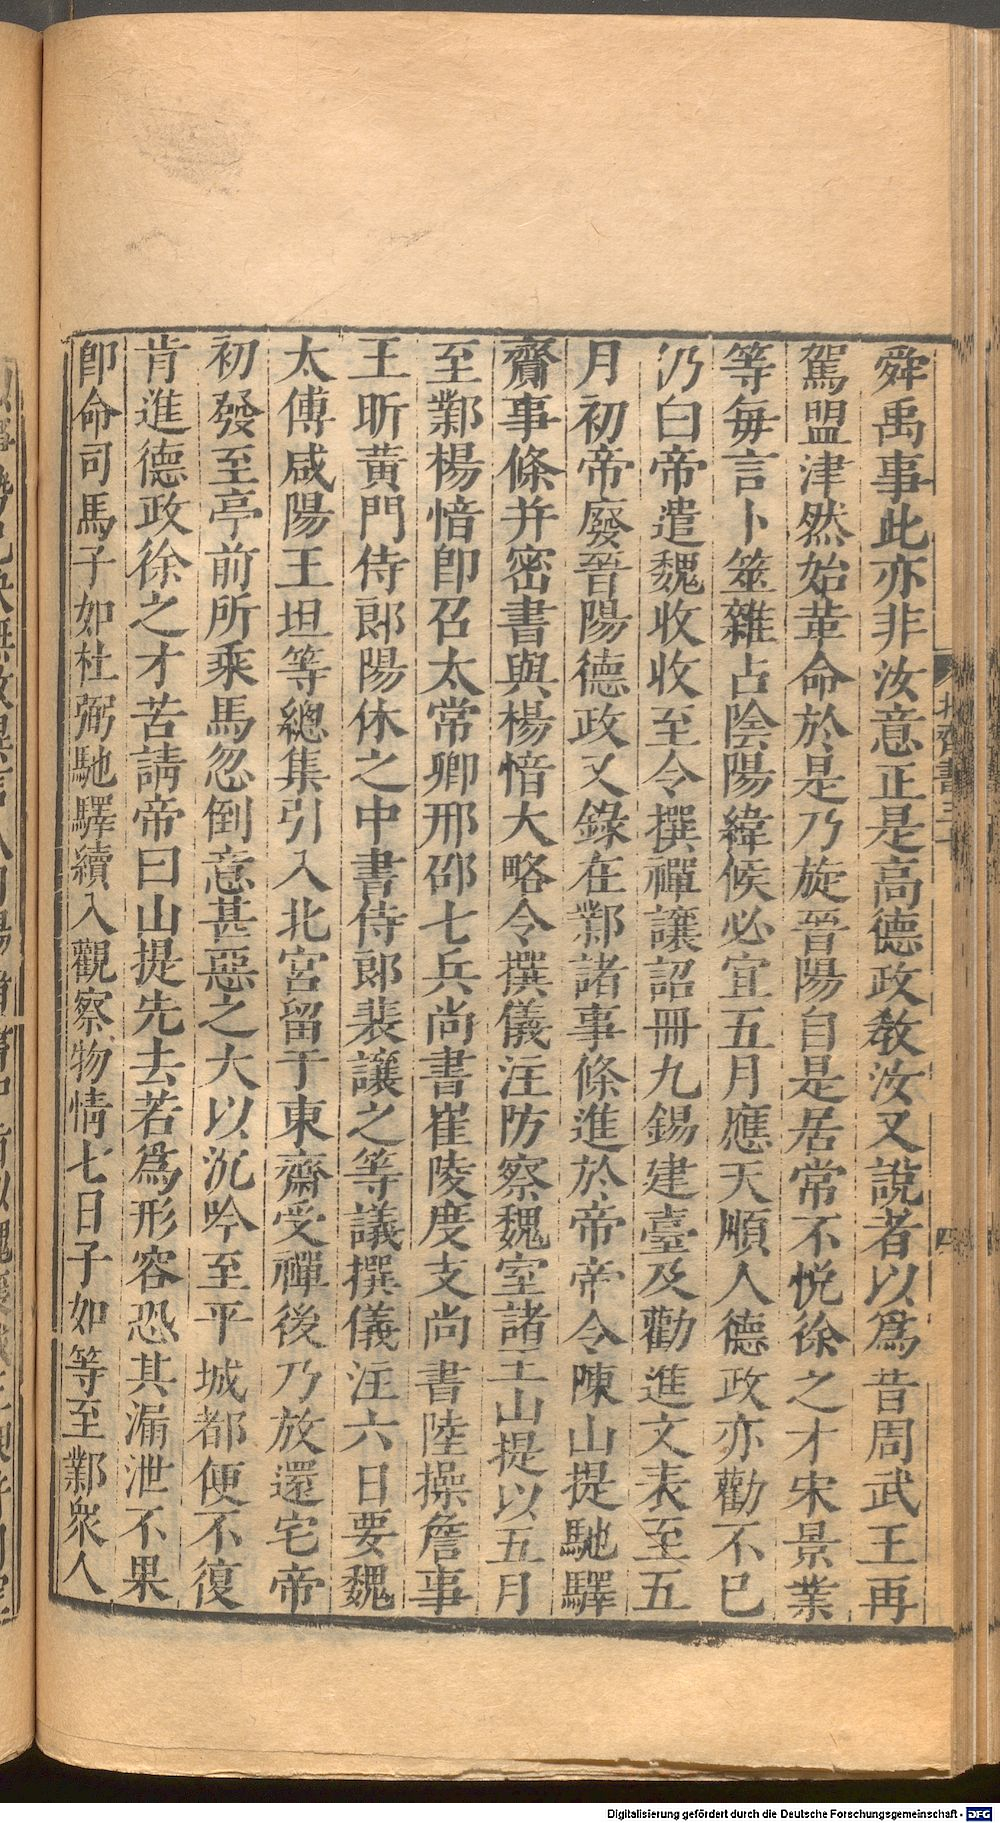 舜禹事此亦非汝意正是高德政教汝又說者以爲昔周武王再
駕盟津然始革命於是乃旋晉陽自是居常不悅徐之才宋景業
等每言卜筮雜占陰陽緯候必宜五月應天順人德政亦勸不已
仍白帝遣魏收收至令撰禪讓詔冊九錫建臺及勸進文表至五
月初帝廢晉陽德政又錄在鄴諸事條進於帝帝令陳山提馳驛
齎事條并密書與楊愔大略令撰儀注防察魏室諸王山提以五月
至鄴楊愔卽召太常卿邢邵七兵尚書崔㥄度支尚書陸操詹事
王昕黃門侍郎陽休之中書侍郎裴讓之等議撰儀注六日要魏
太傅咸陽王坦等總集引入北宮留于東齋受禪後乃放還宅帝
初發至亭前所乘馬忽倒意甚惡之大以沉吟至平城都便不復
肯進德政徐之才苦請帝曰山提先去若爲形容恐其漏泄不果
卽命司馬子如杜弼馳驛續入觀察物情七日子如等至鄴衆人
北齊書三十
四
Digitalisierung gefördert durch die Deutsche Forschungsgemeinschaft - DFG